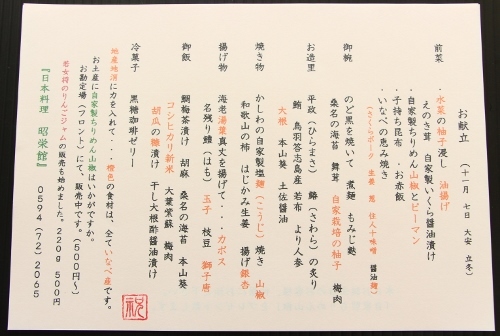 お献立　（十一月　七日　大安　立冬）
前菜　・水菜の柚子浸し　油揚げ
えのき茸　自家製いくら醤油漬け
・自家製ちりめん山椒とピーマン
・子持ち昆布　・お赤飯
・いなべの恵み焼き
（さくらポーク　生姜　葱　住人十味噌　醤油麹）
御椀　のど黒を焼いて　煮麺　もみじ麩
桑名の海苔　舞茸　自家栽培の柚子　梅肉
お造里　平政（ひらまさ）　鰆（さわら）の炙り
鮪　鳥羽答志島産若布　より人参
大根　本山葵　土佐醤油
焼き物　かしわの自家製塩麹（こうじ）焼き　山椒
和歌山の柿　はじかみ生姜　揚げ銀杏
揚げ物　海老湯葉真丈を揚げて・・・カボス
名残り鱧（はも）　玉子　枝豆　獅子唐
御飯　鯛梅茶漬け　胡麻　桑名の海苔　本山葵
コシヒカリ新米　大葉紫蘇　梅肉
胡瓜の糠漬け　干し大根酢醤油漬け
冷菓子　黒糖珈琲ゼリー
地産地消に力を入れて・・・橙色の食材は、全ていなべ産です。
お土産に自家製ちりめん山椒はいかがですか。
お勘定場（フロント）にて、販売中です。（５００円〜）
若女将のりんごジャムの販売も始めました。２２０ｇ　５００円
『日本料理　昭栄館』　０５９４（７２）２０６５
祝